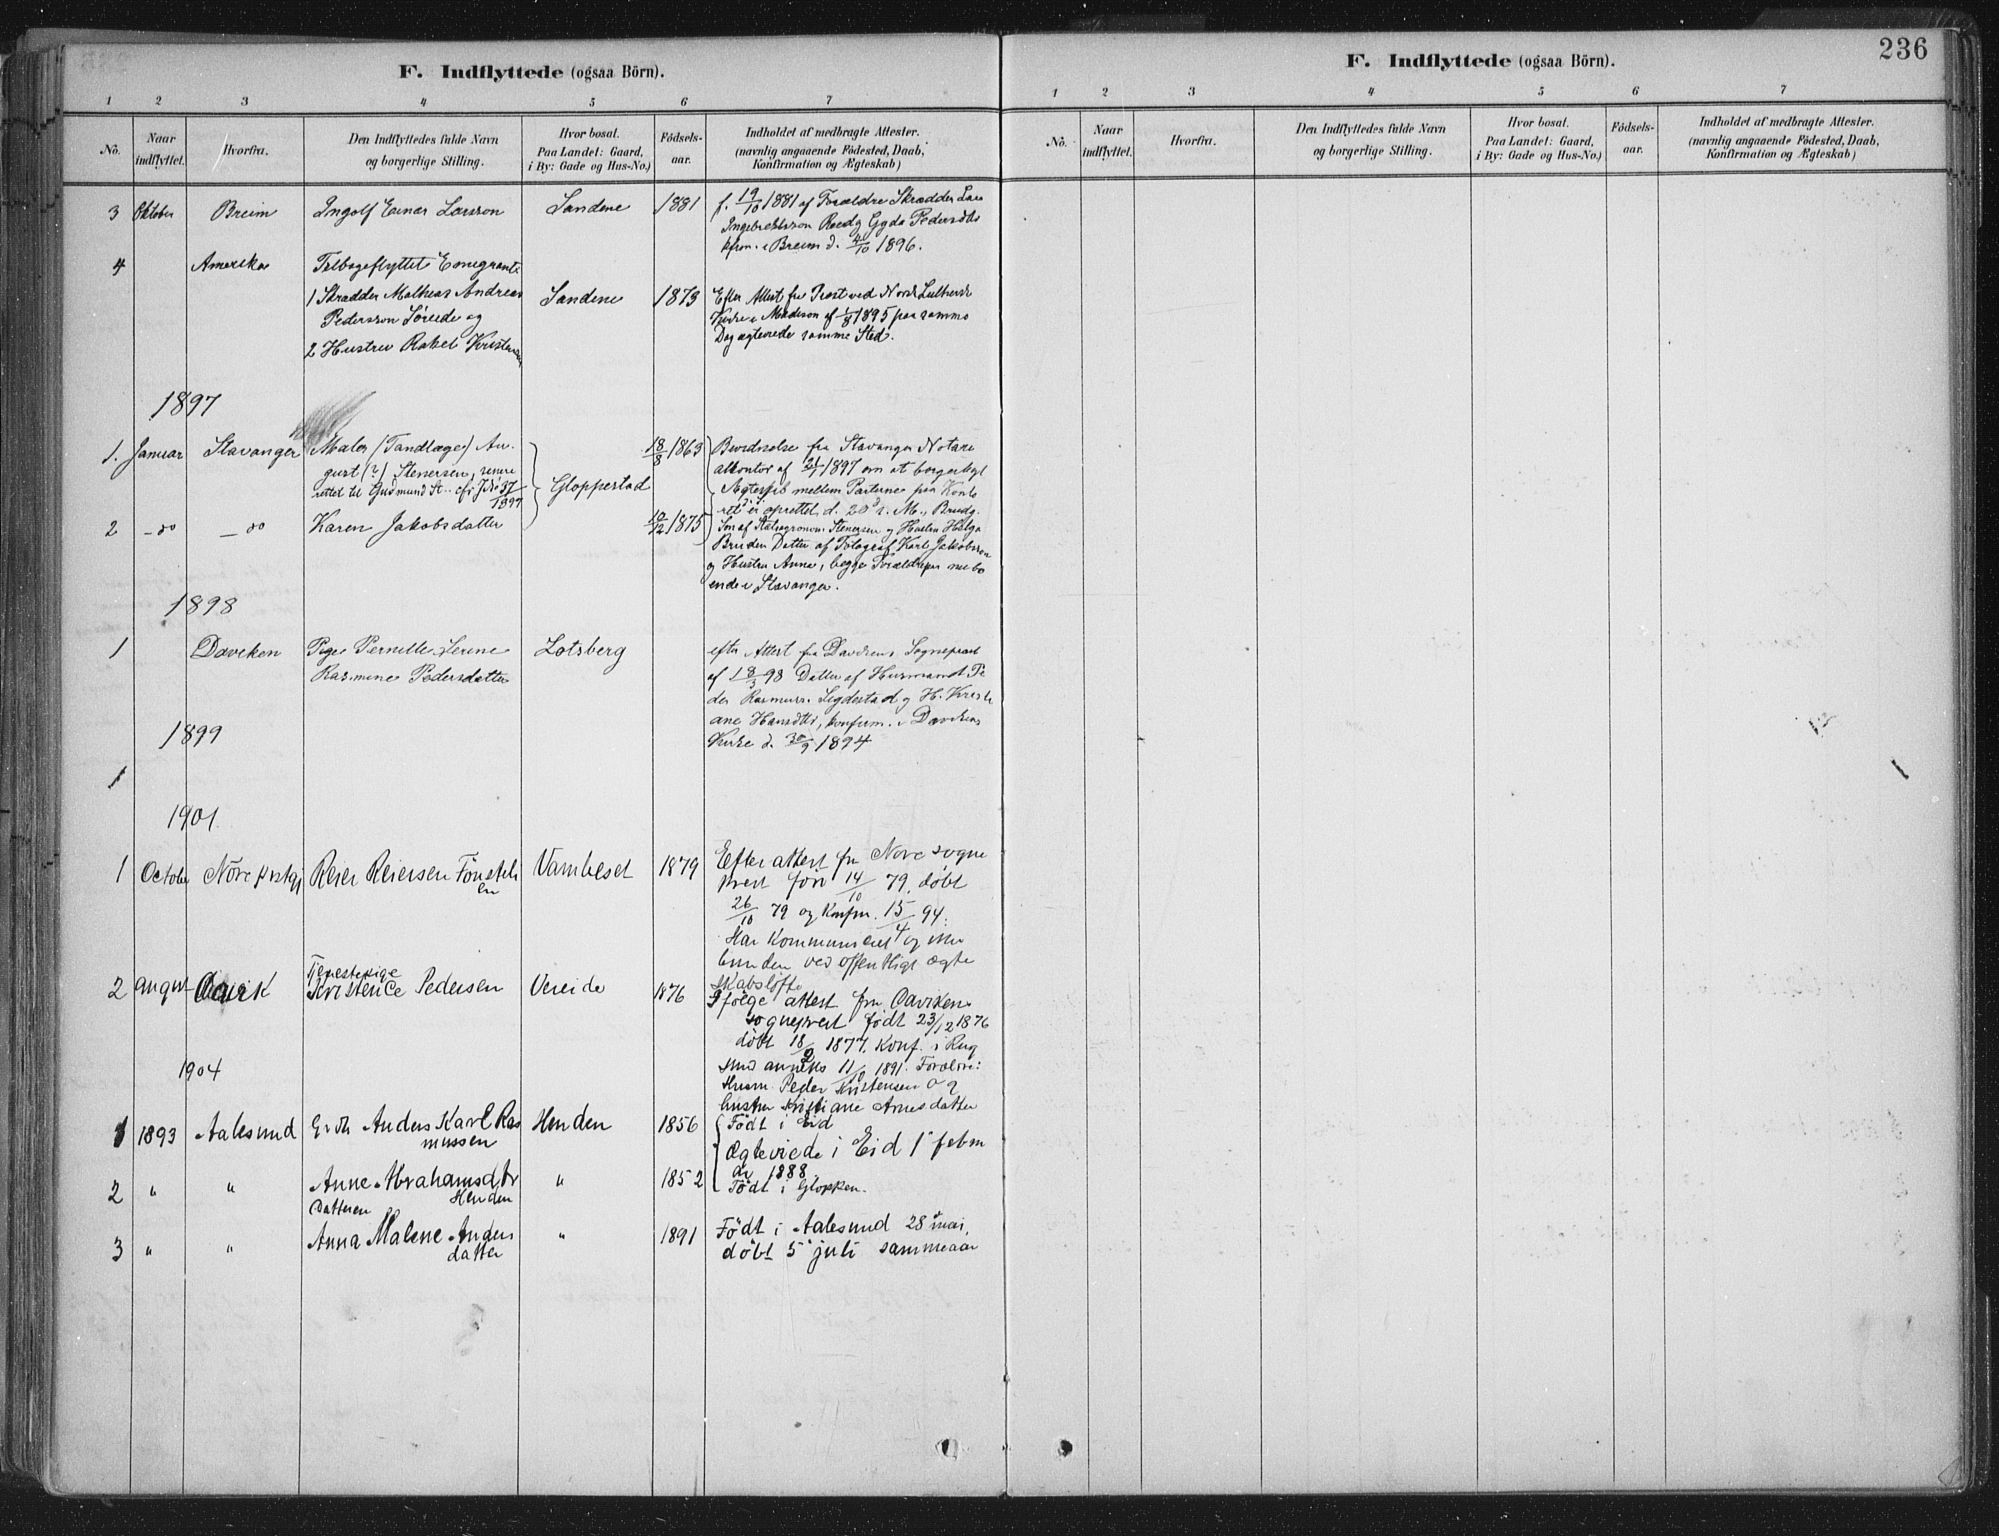 F. Indflyttede (ogsaa Börn).
1 2 3 4 5 6 7
No. Naar indflyttet. Hvorfra. Den Indflyttedes fulde Navn og borgerlige Stilling. Hvor bosat. Paa Landet: Gaard, i By: Gade og Hus-No.) Fødsels-aar. Indholdet af medbragte Attester. (navnlig angaaende Födested, Daab, Konfirmation og Ægteskab)
3 Oktober Breim Ingolf Einar Larsson Sandene 1881 f. 19/10 1881 af Forældre Skrædder Lars
Ingebrektsson Roed og Gyda Pedersdtr
kfirm. i Breim d. 4/10 1896.
4 Amerika Tilbageflyttet Emigrant:
1 Skrædder Mathias Andreas Sandene 1873 Efter Attest fra Prest ved Norsk Luthersk
Pedersson Sörede og Kirke i Madison af 1/8 1895 paa samme
2 Hustru Rakel Kristensen Dag ægteviede samme Sted.
1897
1. Januar Stavanger Maler (Tandlæge) Au- Gloppestad 18/8 1863 Bevidnelse fra Stavanger Notari
gust (?) Stenersen, senere alkontor af 21/1 1897 om at borgerligt
rettet til Gudmund St. cfr. J No 37/1897 Ægteskab mellem Parterne paa Konto
ret er oprettet d. 20d s. M., Brudg.
2 - do - do Karen Jakobsdatter 10/12 1875 Søn af Statsagronom Stenersen og Hustru Helga
Bruden Datter af Fotograf Karl Jakobsson
og Hustru Anne, begge Forældrepar nu bo
ende i Stavanger.
1898
1 Daviken Pige Pernille Serine Lotsberg efter Attest fra Davikens Sogneprest
Rasmine Pedersdatter af 18/3 98 Datter af Husmand Pe
der Rasmuss. Sigdestad og H. Kristi
ane Hansdtr, konfirm. i Davikens
Kirke d. 30/9 1894
1899
1
1901
1 October Nore prstgj Reier Reiersen Fönsteli Vambeset 1879 Efter attest fra Nore sogne
en prest född 14/10 79, døbt
26/10 79 og konfm. 15/4 94.
Har kommuniceret og ikke
bunden ved offentligt ægte
skabsløfte
2 august Davik Tjenestepige
Kristence Pedersen Vereide 1876 Ifølge attest fra Davikens
sogneprest født 23/12 1876
døbt 18/2 1877. Konf. i Rug
sund annex 11/10 1891. Forældre:
Husm. Peder Kristensen og
hustru Kristiane Arnesdatter
1904
1 1893 Aalesund Grdr Anders Karl Ras Henden 1856 Födt i Eid
mussen Ægteviede i Eid 1' febru
ar 1888.
2 " " Anne Abrahamsdtr " 1852 Födt i Gloppen.
Henden
Datteren
3 " " Anna Malene Anders " 1891 Födt i Aalesund 28' mai,
datter døbt 5' juli sammeaar
236
F. Indflyttede (ogsaa Börn).
1 2 3 4 5 6 7
No. Naar indflyttet. Hvorfra. Den Indflyttedes fulde Navn og borgerlige Stilling. Hvor bosat. Paa Landet: Gaard, i By: Gade og Hus-No.) Födsels-aar. Indholdet af medbragte Attester. (navnlig angaaende Födested, Daab, Konfirmation og Ægteskab)